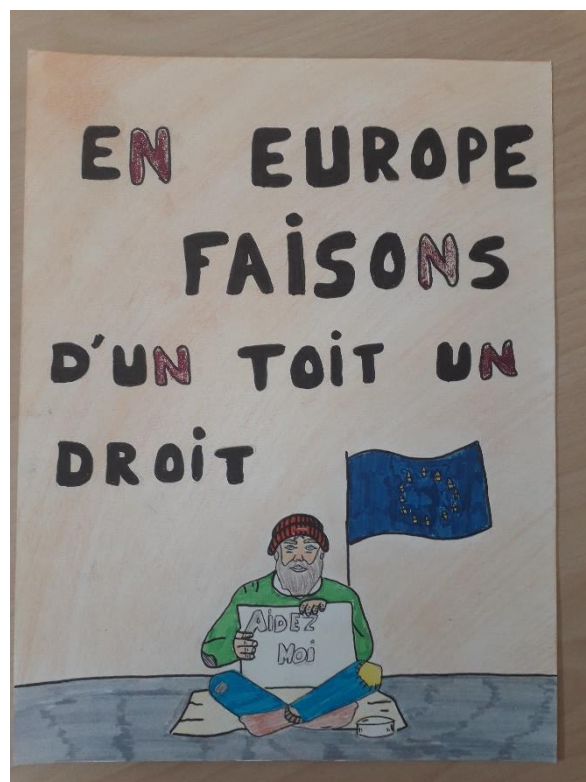 EN EUROPE
FAiSONS
D'UN TOiT UN
DROiT
AiDEZ
MOi